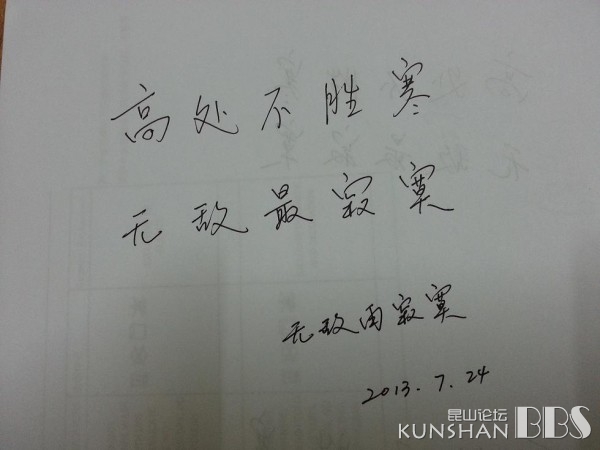 高处不胜寒
无敌最寂寞
无敌雨寂寞
2013.7.24
昆山论坛
KUNSHAN BBS